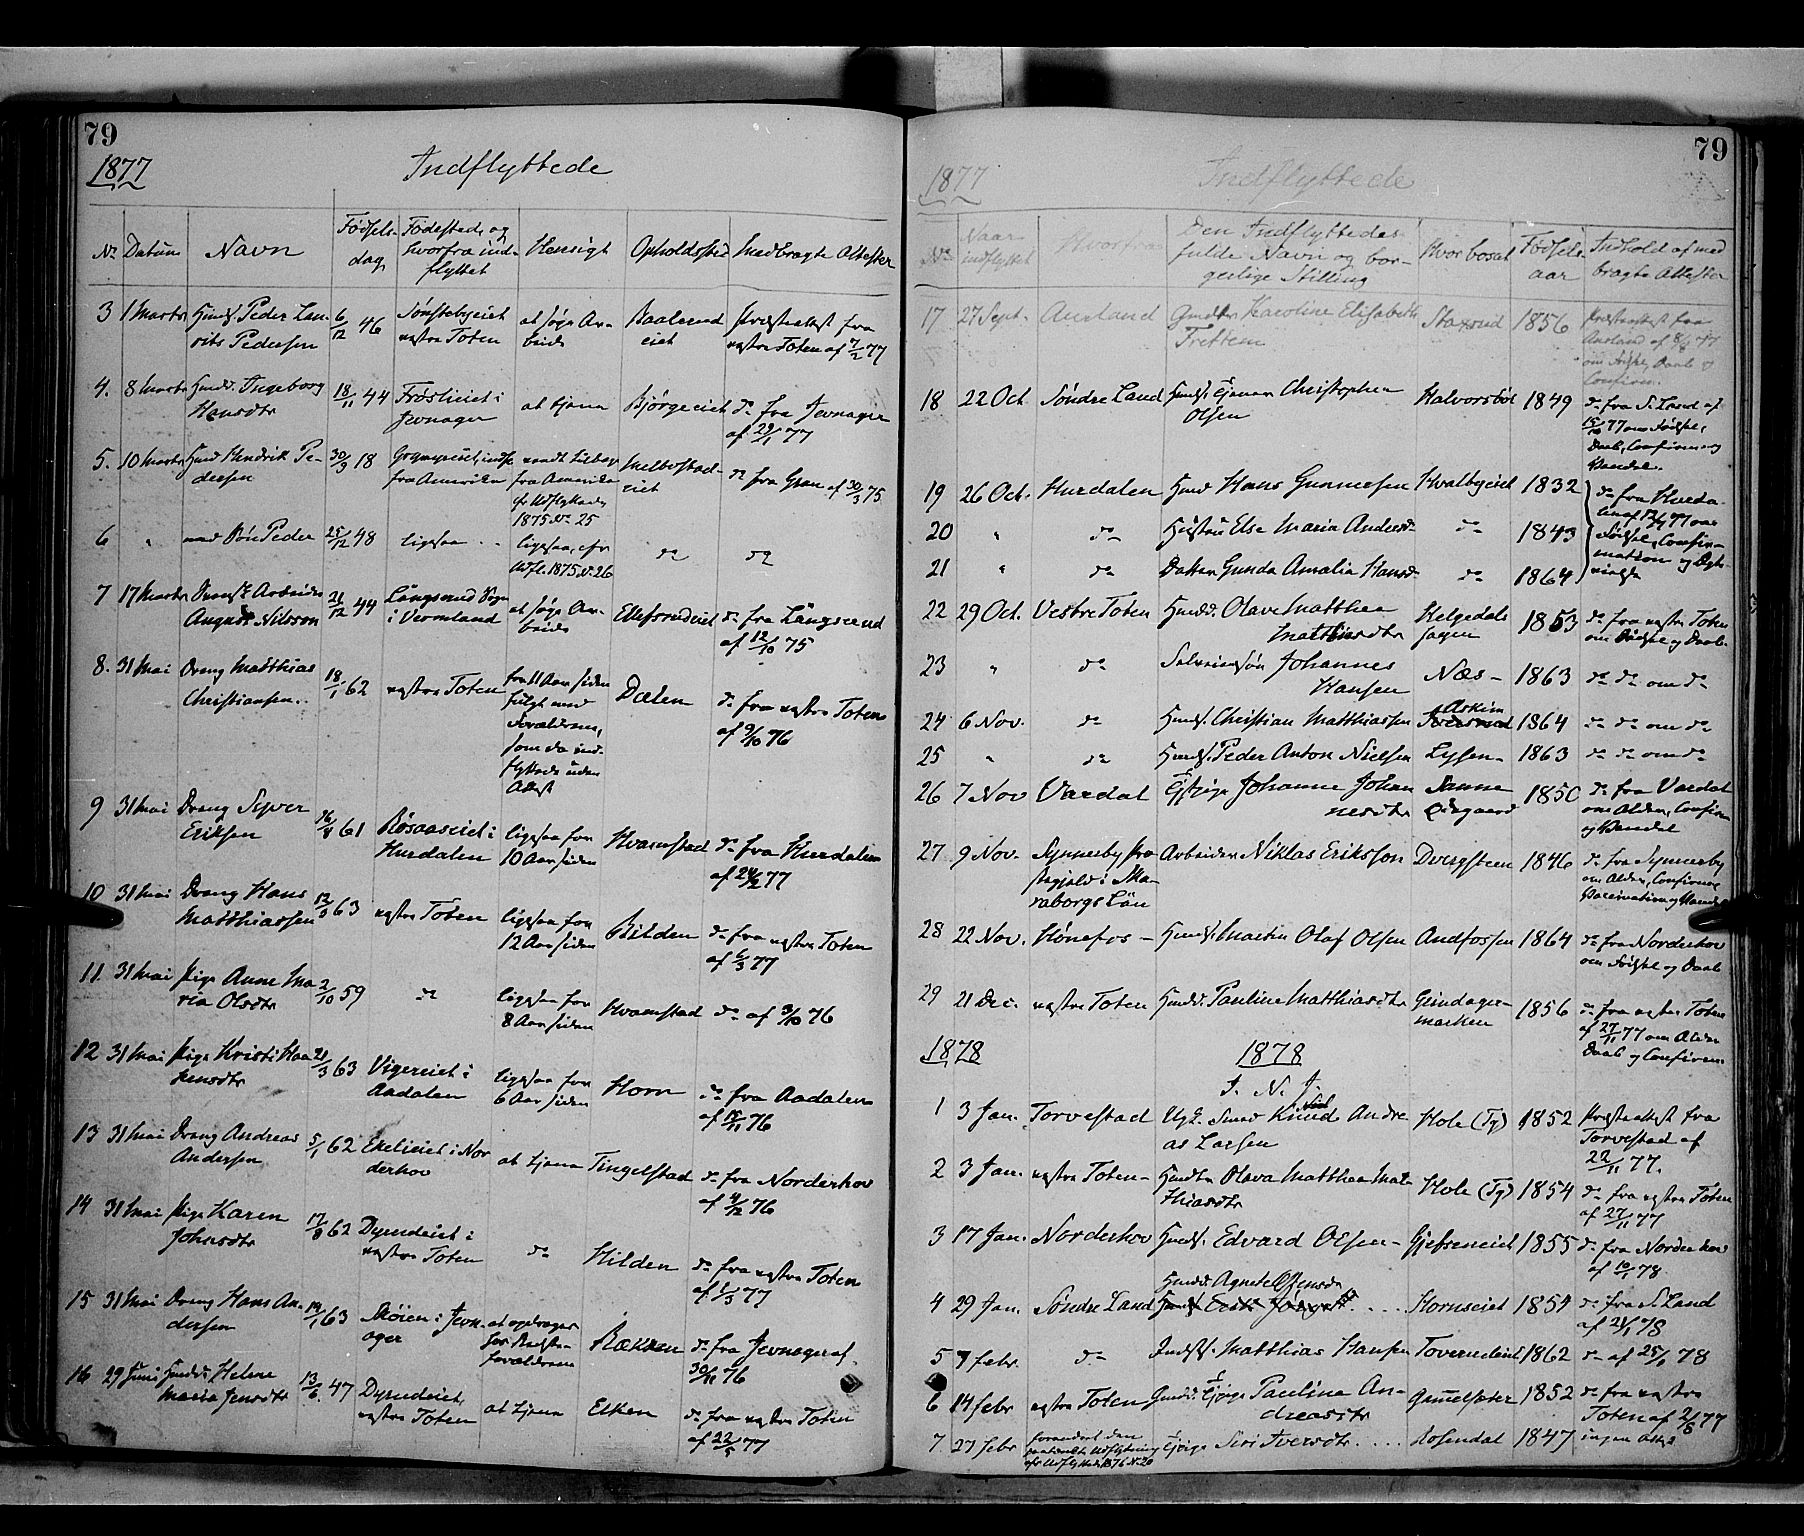 79
1877 Indflyttede
No Datum Navn Fødsels- dag Fødested og hvorfra ind- flyttet Hensigt Opholdssted Medbragte Attester
3 1 Marts Peder Lau- rits Pedersen 6/12 46 vestre Toten at søge Ar- beide eiet Præsteattest fra vestre Toten af 7/2 77
4. 8 Marts Ingeborg Hansdtr 18/11 44 i Jevnager at tjene Bjørgeeiet do fra Jevnager af 29/1 77
5. 10 Marts Hendrik Pe- dersen 30/9 18 fra Amerika fra Amerika cfr Udflyttede 1875 No 25 do fra Gran af 30/3 75
6 " med Søn Peder 25/12 48 ligesaa ligesaa, cfr Udfl. 1875 No 26 do do
7 17 Marts Arbeider August Nilsson 21/12 44 Långserud Sogn i Vermland at søge Ar- beide do fra Långserud af 12/10 75
8. 31 Mai Dreng Matthias Christiansen. 18/1 62 vestre Toten for 11 Aar siden fulgt med Forældrene, som da ind- flyttede uden Attest Dælen do fra vestre Toten af 9/10 76
9 31 Mai Dreng Syver Eriksen 61 Røsaaseiet i Hurdalen ligesaa for 10 Aar siden Hvamstad do fra Hurdalen af 24/2 77
10 31 Mai Dreng Hans Matthiassen 63 vestre Toten ligesaa for 12 Aar siden Bilden do fra vestre Toten af 77
11 31 Mai Pige Anne Ma ria Olsdtr 2/10 59 do ligesaa for 8 Aar siden Hvamstad do af 3/10 76
12 31 Mai Pige Kristi Haa kensdtr 21/3 63 Vigereiet i Aadalen ligesaa for 6 Aar siden Horn do fra Aadalen af 76
13 31 Mai Dreng Andreas Andersen 5/1 62 Ekelieiet i Nor derhov at tjene Tingelstad do fra Norderhov af 4/12 76
14 31 Mai Pige Karen Johnsdtr 62 i vestre Toten do Hilden do fra vestre Toten af 77
15 31 Mai Dreng Hans An- dersen 63 Møien i Jevn- ager at opdrages hos Bedste- forældrene Rækken do fra Jevnager af 76
16 29 Juni Helene Maria Jensdtr 13/6 47 vestre Toten at tjene Elken do fra vestre Toten af 77
79
1877 Indflyttede
No Naar indflyttet Hvorfra Den Indflyttedes fulde Navn og bor- gerlige Stilling Hvor bosat Fødsels- aar Indhold af med bragte Attester
17 27 Sept. Aurland Karoline Elisabeth Frettem 1856 Præsteattest fra Aurland af 8/8 77 om Fødsel, Daab og Confirm.
18 22 Oct. Søndre Land Christophen Olsen Halvorsbøl 1849 do fra S. Land af 77 om Fødsel, Daab, Confirm. og Vandel.
19 26 Oct. Hurdalen Hans Gunnersen Hvalbyeiet 1832 do fra Hurda- len af 77 om Fødsel, Confir- mation og Ægte- vielse
20 " do Hustru Else Maria Andersdr do 1843
21 " do Datter Gunda Amalia Hansdr do 1864
22 29 Oct. Vestre Toten Olave Matthea Matthisdtr Helgedals hagen 1853 do fra vestre Toten om Fødsel og Daab.
23 " do Johannes Hansen Næs - 1863 do do om do
24 6 Nov. do Christian Matthiassen Askim 1864 do do om do
25 " do Peder Anton Nielsen Lysen - 1863 do do om do
26 7 Nov Vardal Johanne Johan nesdtr Sanne Østgaard 1850 do fra Vardal om Alder, Confirm og Vandel
27 9 Nov. Synnerby Præ stegjeld i Ska- raborgs Län Arbeider Niklas Eriksson Dvergsteen 1846 do fra Synnerby om Alder, Confirm. Vaccination og Vandel
28 22 Nov. Hønefos - Martin Olaf Olsen Andfossen 1864 do fra Norderhov om Fødsel og Daab
29 21 Dec. vestre Toten Pauline Matthiasdtr Grindager- marken 1856 do fra vestre Toten af 27/11 77 om Alder Daab og Confirm
1878 1878
I. N. J.
1 3 Jan. Torvestad Ugk. Smed Knud Andre as Larsen Hole (Tg) 1852 Præsteattest fra Torvestad af 22/11 77.
2 3 Jan. vestre Toten - Olava Matthea Mat- thiasdtr Hole (Tg) 1854 do fra vestre Toten af 27/11 77
3 17 Jan. Norderhov Edvard Olsen - Gjefseneiet 1855 do fra Norderhov af 10/1 78
4 29 Jan. Søndre Land Agnete Horneiet 1854 do fra S. Land af 78
5 febr. do Matthias Hansen 1862 do af 25/1 78
6 14 febr vestre Toten Pauline An- dreasdtr 1852 do fra vestre Toten af 2/8 77
7. 27 febr forandret den paatænkte Udflytning cfr Udflyttede 1876 No 20 Siri Iversdtr. Rosendal 1847 ingen Attest